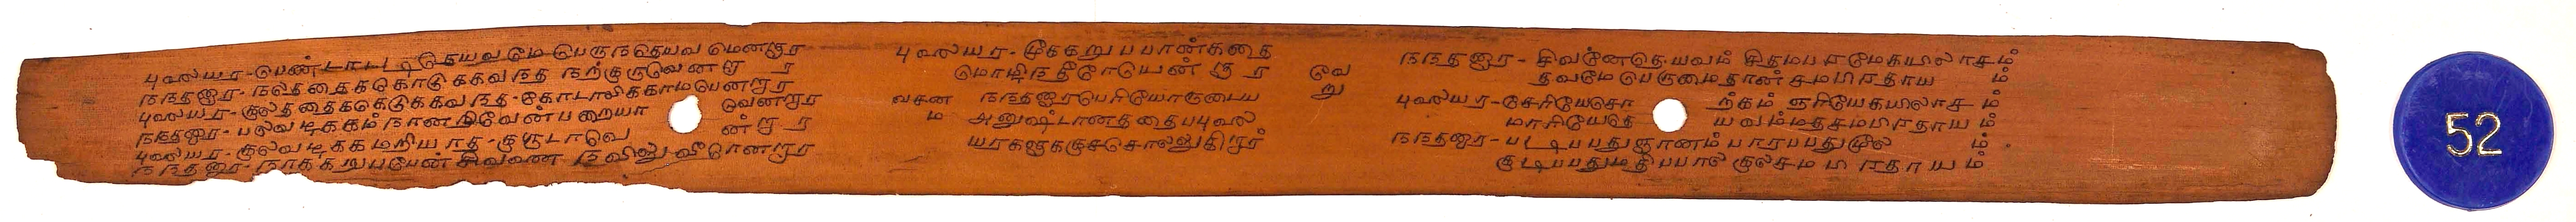 புலையர-பெண்டாட்டி தெயவமே பெருநதெயவ மெனறார
நநதனார-நலததைககொடுககவநத நறகுருவெனறா ர
புலையர-குலததைககெடுககவநத-கோடாலிககாமபெனறார
நநதனார-பலவடிககம்நான றிவேன்பறையா வெனறார
புலையர-குலவடிககமறியாத-குருடாவெ ன்றா ர
நநதனார-நாககறுபபேன் சிவனை
புலையர-மூககறுபபான்கதை
மொழிநதீரோயென்றா ர வெ று
வசன நநதனாரபெரியோருடைய
ம அனுஷ்டானததைபபுலை
யரகளுககுசசொலலுகிறார்
நநதனார-சிவனேதெயவம் சிதமபரமேகயிலாசம்
தவமே பெருமைதான் சமபிரதாய ம்
புலையர-சேரியேசொ ர்கம் ஏரியேகயிலாச ம்
மாரியேதெ யவம்மதசமபிரதாய ம்
நநதனார-படிபபதுஞானம் பாரபபதுமூல ம்
குடிபபதுமதிபபால் குலசமபிரதாயம்
52